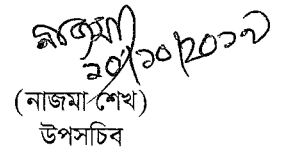 নাজমা
১০/১০/২০১৭
(নাজমা শেখ)
উপসচিব